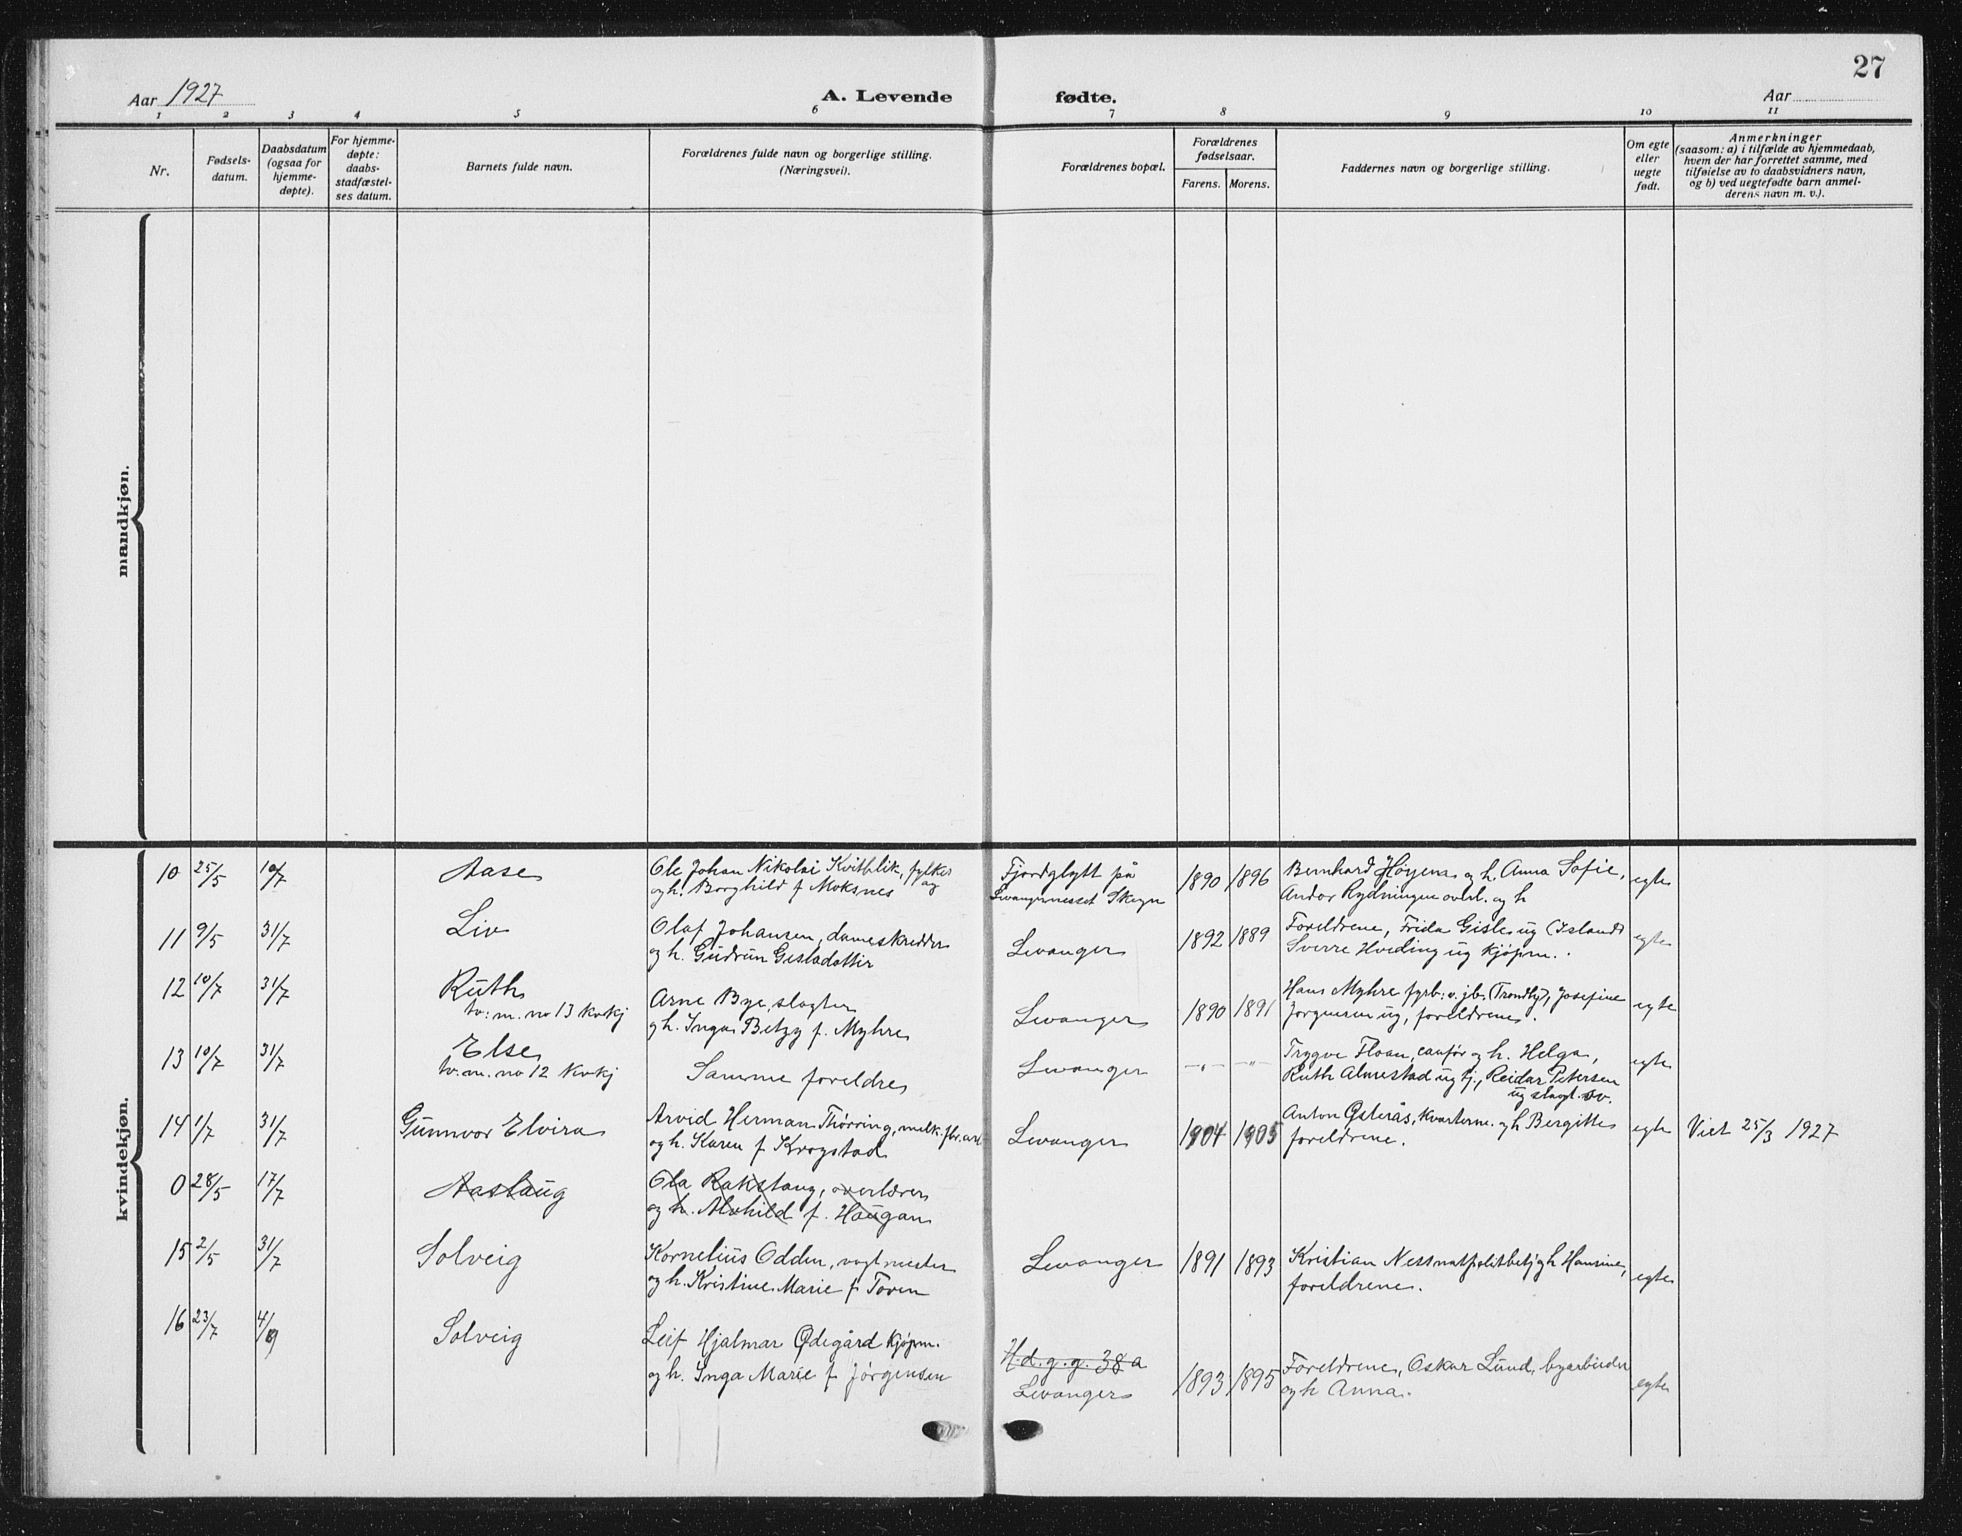 27
Aar 1927
A. Levende fødte.
Aar
1 2 3 4 5 6 7 8 9 10 11
Nr.
Fødsels-
datum.
Daabsdatum
(ogsaa for
hjemme-
døpte).
For hjemme-
døpte:
daabs-
stadfæstel-
ses datum.
Barnets fulde navn.
Forældrenes fulde navn og borgerlige stilling.
(Næringsvei).
Forældrenes bopæl.
Forældrenes
fødselsaar.
Farens. Morens.
Faddernes navn og borgerlige stilling.
Om egte
eller
uegte
født.
Anmerkninger
(saasom: a) i tilfælde av hjemmedaab,
hvem der har forrettet samme, med
tilføielse av to daabsvidners navn,
og b) ved uegtefødte barn anmel-
derens navn m. v.).
mandkjøn.
kvindekjøn.
10 25/5 10/7 Aase
Ole Johan Nikolai Kvitblik,
og h. Borghild f Moksnes
Fjordglytt på
Levangernesset Skogn
1890 1896
Bernhard Høyem og h. Anna Sofie,
Andor Rydningen og h
egte
11 9/5 31/7 Liv
Olaf Johansen, dameskredder
og h. Gudrun Gisladottir
Levanger
1892 1889
Foreldrene, Frida Gisle ug (Island)
Sverre Hveding ug kjøpm.
egte
12 10/7 31/7 Ruth
tv: m. no 13 kvkj
Arne Bye, slagter
og h. Inga Betzy f. Myhre
Levanger
1890 1891
Hans Myhre fyrb. v. jb. (Trondhj), Josefine
Jørgensen ug, foreldrene.
egte
13 10/7 31/7 Else
tv. m. no 12 Kvkj
Samme foreldre
Levanger
-"- -"-
Trygve Floan, og h. Helga,
Ruth Almestad ug tj., Reidar Petersen
ug slagt. sv.
egte
14 1/7 31/7 Gunnvor Elvira
Arvid Herman Thørring, melk.
og h. Karen f Krogstad
Levanger
1904 1905
Anton Østerås, kvarterm. og h Bergitte
foreldrene.
egte
Viet 25/3 1927
0 28/5 17/7 Aaslaug
Ola Rakstang, overlærer
og h. Alvhild f. Haugan
15 2/5 31/7 Solveig
Kornelius Odden, vogtmester
og h. Kristine Marie f Toven
Levanger
1891 1893
Kristian Ness og h Hansine,
foreldrene.
egte
16 23/7 4/9 Solveig
Leif Hjalmar Ødegård kjøpm.
og h. Inga Marie f Jørgensen
H.d.g.g. 38a
Levanger
1893 1895
Foreldrene, Oskar Lund, byarbeider
og h Anna.
egte